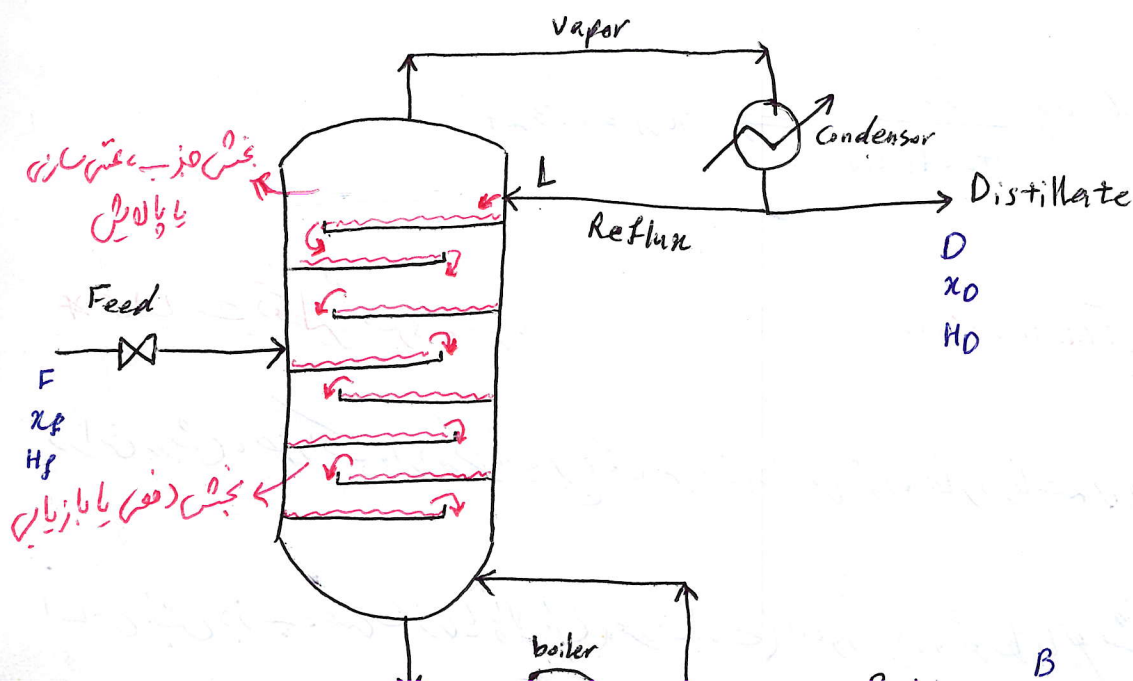 vapor
Condensor
بخش جذب، غنی سازی
یا پالایش
L
Reflux
Distillate
D
xD
HD
Feed
F
xf
Hf
بخش دفعی یا بازیابی
boiler
B